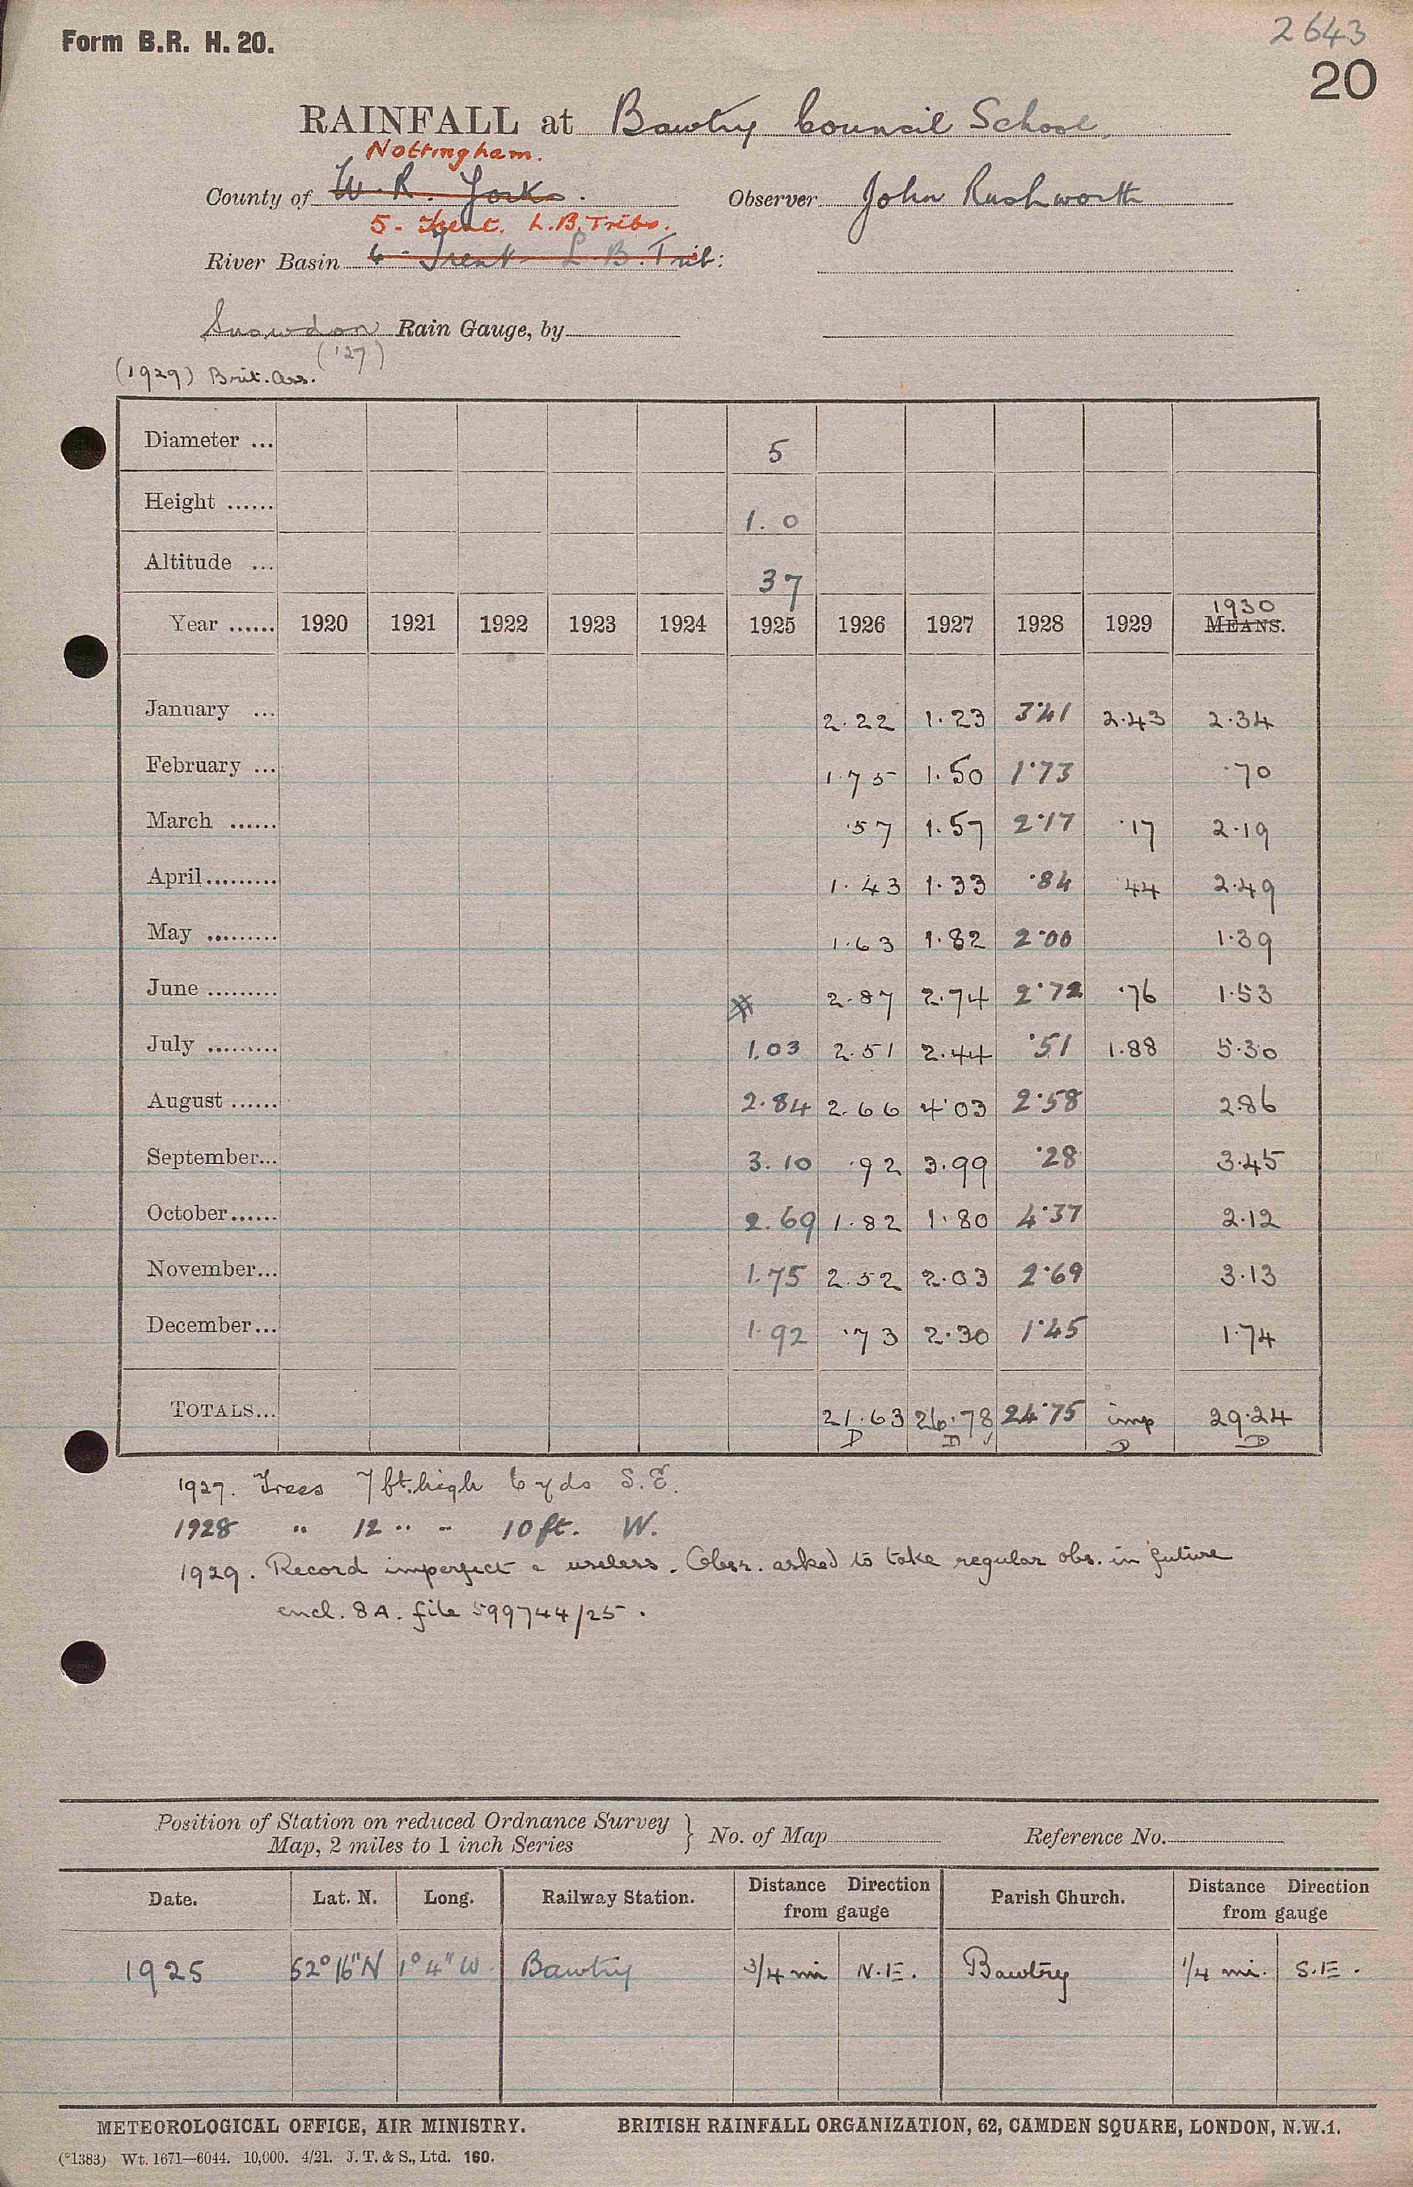 Form B.R. H. 20.
2643
20
RAINFALL at Bawtry Council School.
Nottingham.
County of W. R. Yorks. Observer John Rushworth
5. Trent. L.B. Tribs.
River Basin 6 - Trent - L.B. Trib:
Snowdon Rain Gauge, by
('27)
(1929) Brit. Ass.
Diameter ... 5
Height ...... 1. 0
Altitude ... 37
1930
Year ...... 1920 1921 1922 1923 1924 1925 1926 1927 1928 1929 MEANS.
January ... 2.22 1.23 3.41 2.43 2.34
February ... 1.75 1.50 1.73 .70
March ...... .57 1.57 2.17 .17 2.19
April ......... 1.43 1.33 .84 .44 2.49
May ......... 1.63 1.82 2.00 1.39
June ......... 2.87 2.74 2.72 .76 1.53
July ......... 1.03 2.51 2.44 .51 1.88 5.30
August ...... 2.84 2.66 4.03 2.58 2.86
September... 3.10 .92 3.99 .28 3.45
October ...... 2.69 1.82 1.80 4.37 2.12
November... 1.75 2.52 2.03 2.69 3.13
December ... 1.92 .73 2.30 1.45 1.74
TOTALS... 21.63 26.78 24.75 imp 29.24
D D D D
1927. Trees 7 ft. high 6 yds S.E.
1928 " 12 " " 10 ft. W.
1929. Record imperfect & useless. Obsr. asked to take regular obs. in future
encl. 8A. file 599744/25.
Position of Station on reduced Ordnance Survey
Map, 2 miles to 1 inch Series } No. of Map Reference No.
Date. Lat. N. Long. Railway Station. Distance Direction from gauge Parish Church. Distance Direction from gauge
1925 52° 16" N 1° 4" W. Bawtry 3/4 mi N.E. Bawtry 1/4 mi. S.E.
METEOROLOGICAL OFFICE, AIR MINISTRY. BRITISH RAINFALL ORGANIZATION, 62, CAMDEN SQUARE, LONDON, N.W.1.
(*1383) Wt. 1671—6044. 10,000. 4/21. J. T. & S., Ltd. 160.